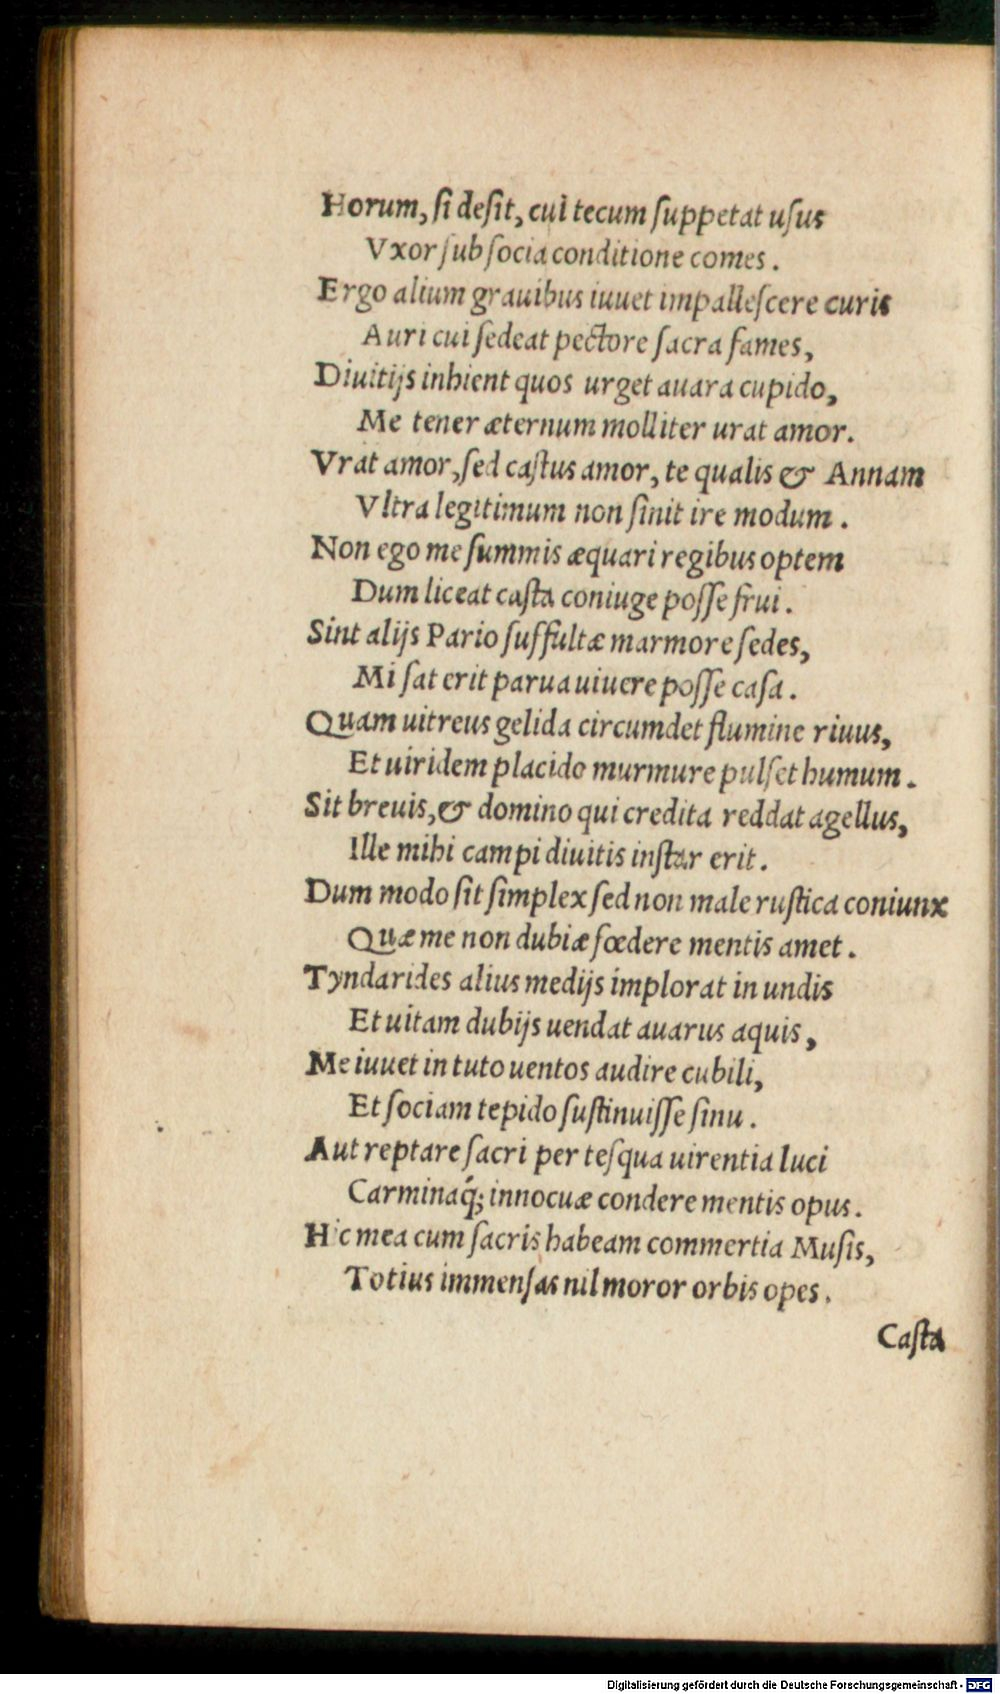 Horum, ſi deſit, cui tecum ſuppetat uſus
Vxor ſub ſocia conditione comes.
Ergo alium grauibus iuuet impalleſcere curis
Auri cui ſedeat pectore ſacra fames,
Diuitijs inhient quos urget auara cupido,
Me tener æternum molliter urat amor.
Vrat amor, ſed caſtus amor, te qualis & Annam
Vltra legitimum non ſinit ire modum.
Non ego me ſummis æquari regibus optem
Dum liceat caſta coniuge poſſe frui.
Sint alijs Pario ſuffultæ marmore ſedes,
Mi ſat erit parua uiuere poſſe caſa.
Quam uitreus gelida circumdet flumine riuus,
Et uiridem placido murmure pulſet humum.
Sit breuis, & domino qui credita reddat agellus,
Ille mihi campi diuitis inſtar erit.
Dum modo ſit ſimplex ſed non male ruſtica coniunx
Quæ me non dubiæ fœdere mentis amet.
Tyndarides alius medijs implorat in undis
Et uitam dubijs uendat auarus aquis,
Me iuuet in tuto uentos audire cubili,
Et ſociam tepido ſuſtinuiſſe ſinu.
Aut reptare ſacri per teſqua uirentia luci
Carminaq́; innocuæ condere mentis opus.
Hic mea cum ſacris habeam commertia Muſis,
Totius immenſas nil moror orbis opes.
Caſta
Digitalisierung gefördert durch die Deutsche Forschungsgemeinschaft - DFG